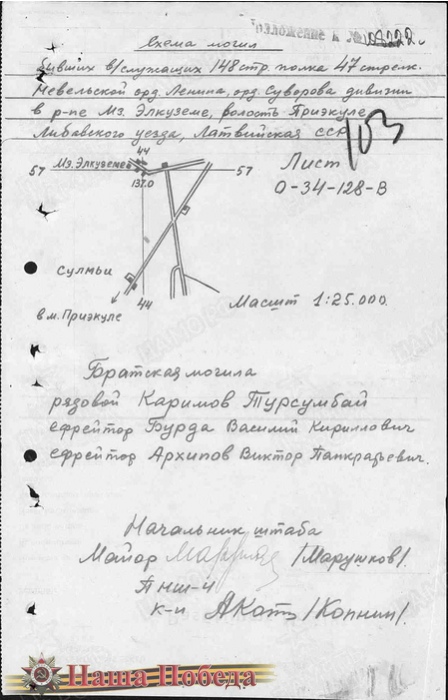 Схема могил
бывших в/служащих 148 стр. полка 47 стрелк.
Невельской орд. Ленина, орд. Суворова дивизии
в р-не Мз. Элкуземе, волость Приэкуле
Либавского уезда, Латвийская ССР
103
Лист
О-34-128-В
44
57 Мз. Элкуземе 57
137.0
Сулмьи
44
в м. Приэкуле
Масшт 1:25.000.
Братская могила
рядовой Каримов Турсумбай
ефрейтор Бурда Василий Кириллович
ефрейтор Архипов Виктор Панкратьевич.
Начальник штаба
Майор /Марушков/.
ПНШ-4
к-н /Копнин/.
Наша Победа